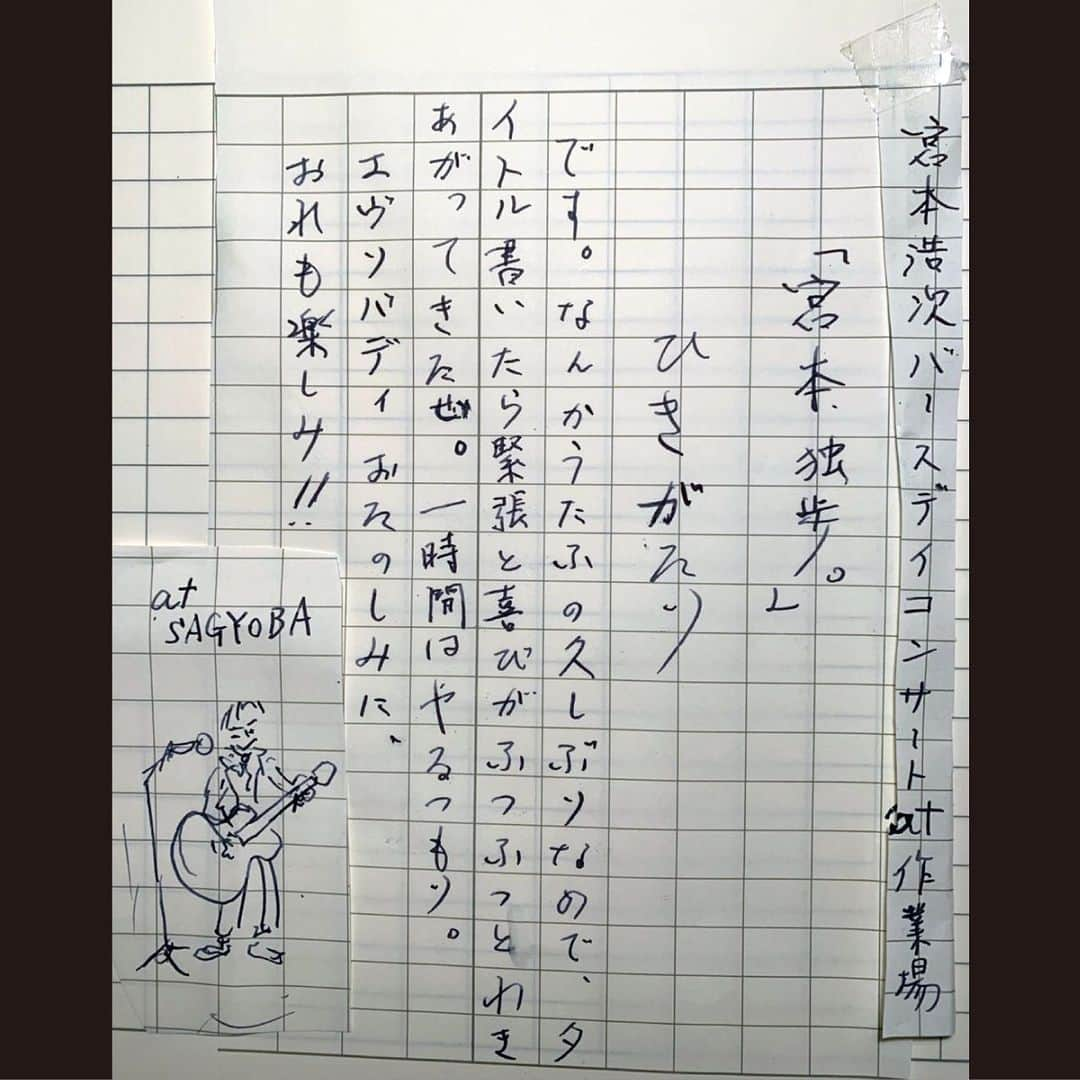 宮本浩次バースデイコンサートat作業場
「宮本、独歩。」
ひきがたり
です。なんかうたふの久しぶりなので、タ
イトル書いたら緊張と喜びがふつふつとわき
あがってきたぜ。一時間はやるつもり。
エヴリバディおたのしみに、
おれも楽しみ!!
at
SAGYOBA